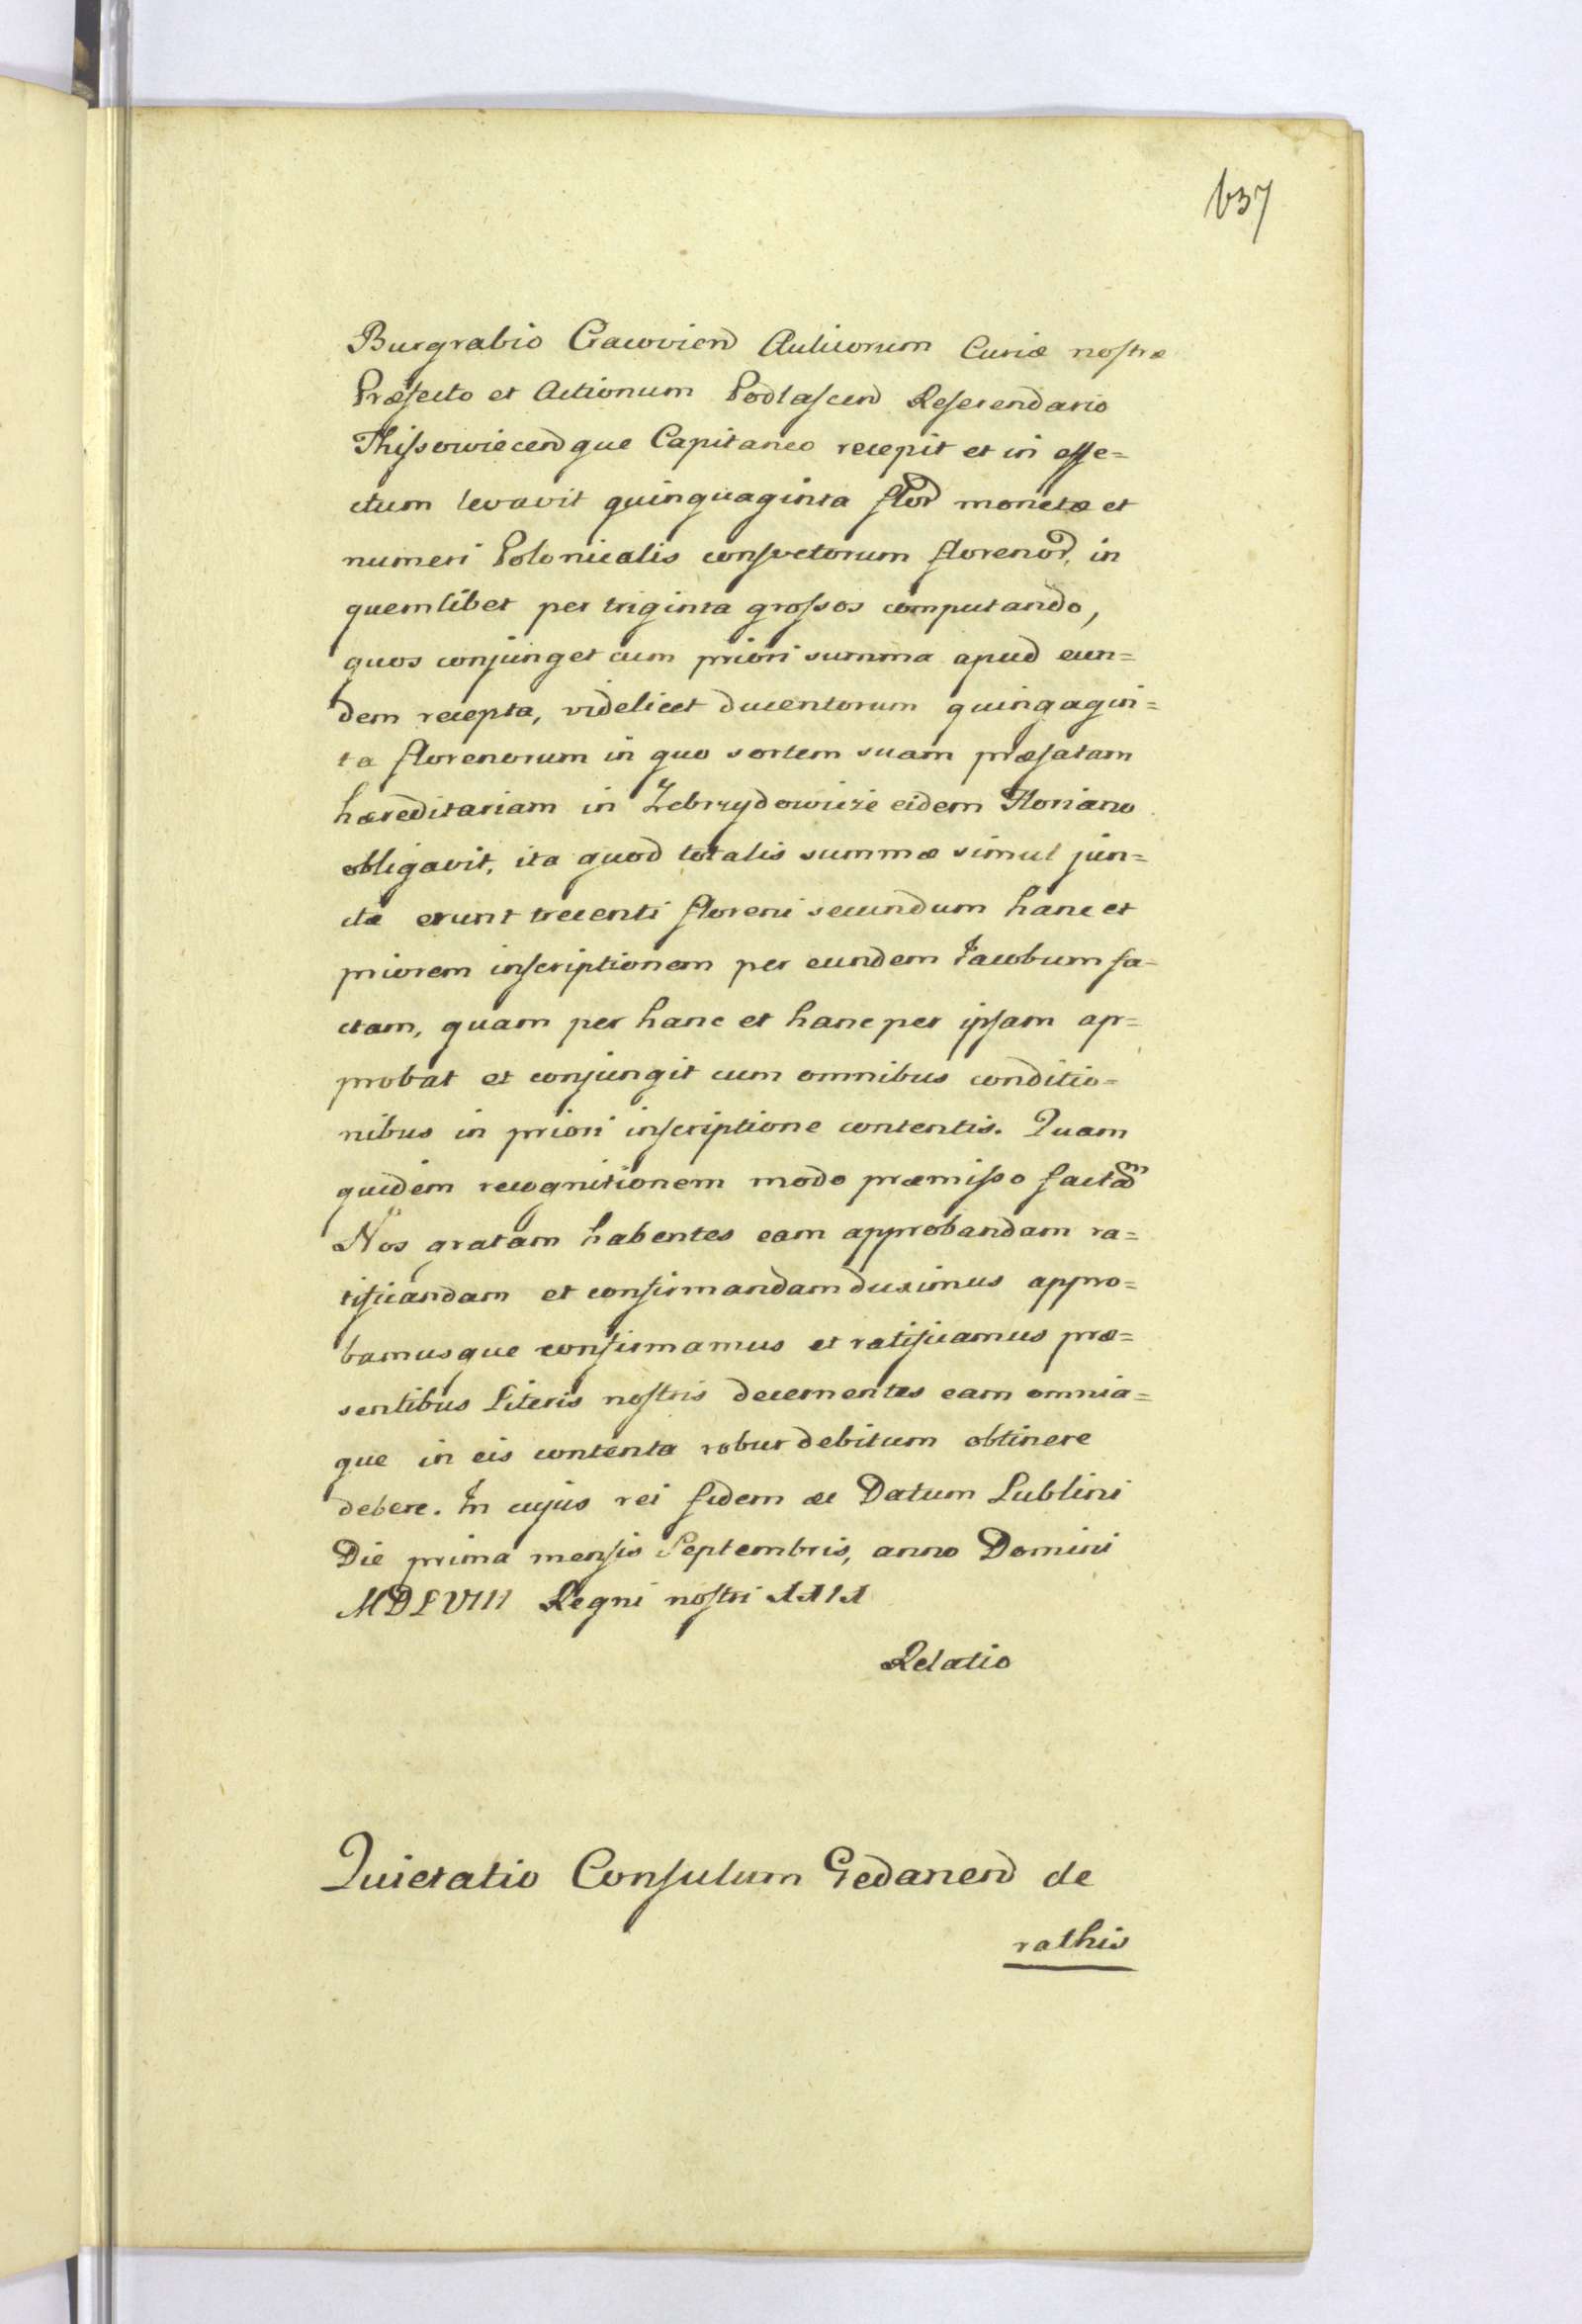 637
Burgrabio Cracovien Aulicorum Curiæ nostræ
Præfecto et Actionum Podlascen Referendario
Thissowiecenque Capitaneo recepit et in effe=
ctum levavit quinquaginta flor monetæ et
numeri Polonicalis consvetorum florenor, in
quemlibet per triginta grossos computando,
quos conjunget cum priori summa apud eun=
dem recepta, videlicet ducentorum quingagin=
ta florenorum in quo sortem suam præfatam
hæreditariam in Zebrzydowicze eidem Floriano
obligavit, ita quod totalis summæ simul jun=
ctæ erunt trecenti floreni secundum hanc et
priorem inscriptionem per eundem Jacobum fa=
ctam, quam per hanc et hanc per ipsam ap=
probat et conjungit cum omnibus conditio=
nibus in priori inscriptione contentis. Quam
quidem recognitionem modo præmisso factam
Nos gratam habentes eam approbandam ra=
tificandam et confirmandam duximus appro=
bamusque confirmamus et ratificamus præ=
sentibus Literis nostris decernentes eam omnia=
que in eis contenta robur debitum obtinere
debere. In cujus rei fidem &c Datum Lublini
Die prima mensis Septembris, anno Domini
MDLVIII Regni nostri XXIX
Relatio
Quietatio Consulum Gedanen de
rathis